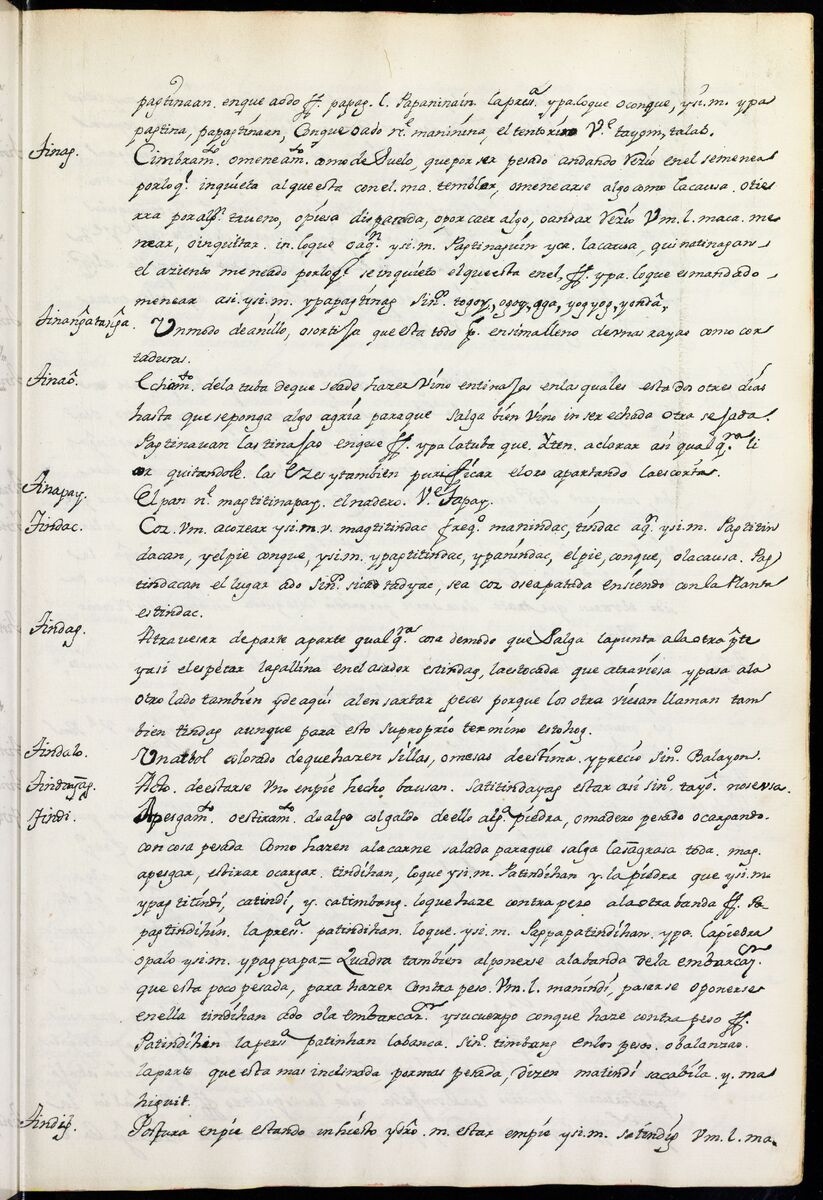 pagtinaan. enque aodo ff. papag. l. Papaninain. la pres.ª ypa loque oconque, ysi.m. ypa
pagtina, papagtinaan, Conque oado rc.º maninina, el tentorin V.e tayom, talab.
Tinag. Cimbram.to o meneam.to como de Suelo, que por ser pesado andando Verio en el semenea
por loq.l inquieta al que esta con el. ma. temblar, o menearse algo como la causa. o tie-
rra por alg.n trueno, o piesa disparada, o por caer algo, o andar Verio Vm. l. maca. me
near, o inquitar. in. lo que o aq.n ysi.m. Pagtinaguin yca. la causa, quinatinagan
el aziento meneado por lo q.l se inquieto el que esta en el, ff. ypa. lo que es mandado
menear asi. ysi.m. ypapagtinag sin.º togoy, ogoy, oga, yogyog, yonda,
Tinangatanga. Un modo de anillo, o sortija que esta todo p.r ensima lleno de unas rayas como cor
taduras.
Tinao. Echam.to de la tuba de que se a de hazer Vino en tinajas en las quales esta dos o tres dias
hasta que se ponga algo agria para que salga bien Vino in ser echada otra se jada.
Pagtinauan las tinajas en que ff. ypa la tuba que. Yten. aclarar asi qual q.ra li
cor quitandole las ezes y tambien purificar el oro apartando la escoria.
Tinapay. El pan n.e magtitinapay. el nadero. V.e Tapay.
Tindac. Coz. Vm. acozear ysi.m. v. magtitindac freq.º manindac, tindac aq.n ysi.m. Pagtitin
dacan, y el pie conque, ysi.m. ypagtitindac, ypanindac, el pie, conque, o la causa. Pag
tindacan el lugar ado sin.º sicad tadyac, sea coz o sea patada ensiendo con la Planta
es tindac.
Tindag. Atravesar de parte a parte qual q.ra cosa de modo que Salga la punta a la otra p.te
y asi el espetar la gallina en el asador es tindag, la estocada que atraviesa y pasa a la
otro lado tambien y de aqui al ensartar peces porque los atraviesan llaman tam
bien tindag aunque para esto su proprio termino es tohog.
Tindalo. Un arbol colorado de que hazen sillas, o mesas de estima. y precio sin.º Balayon.
Tindayag. Acto. de estarse Vno en pie hecho bausan. Satitindayag estar asi sin.º tayo. nosensa.
Tindi. Apesgam.to o estiram.to de algo colgaldo de ello alg.a piedra, o madero pesado o cargando.
con cosa pesada Como hazen a la carne salada para que salga la sagrasa toda. mag.
apesgar, estirar o cargar. tindihan, lo que ysi.m. Patindihan y. la piedra que ysi.m.
ypagtitindi, catindi, y. catimbang. lo que haze contra peso a la otra banda ff. Pa
pagtindihin. la pres.a patindihan. lo que. ysi.m. Pagpapatindihan. ypa. la piedra
o palo ysi.m. ypagpapa = Quadra tambien al ponerse a la banda de la embarcaz.n
que esta poco pesada, para hazer contra peso. Vm. l. manindi, pasarse o ponerse
en ella tindihan ado o la embarcac.n y su cuerpo conque haze contra peso ff.
Patindihin la pers.a patinhan la banca. sin.º timbang en los pesos. o balanzas.
la parte que esta mas inclinada por mas pesada, dizen matindi sa cabila. y. ma
higuit.
Tindig. Postura en pie estando inhiesto ysto. m. estar empie ysi.m. satindig Vm. l. ma.